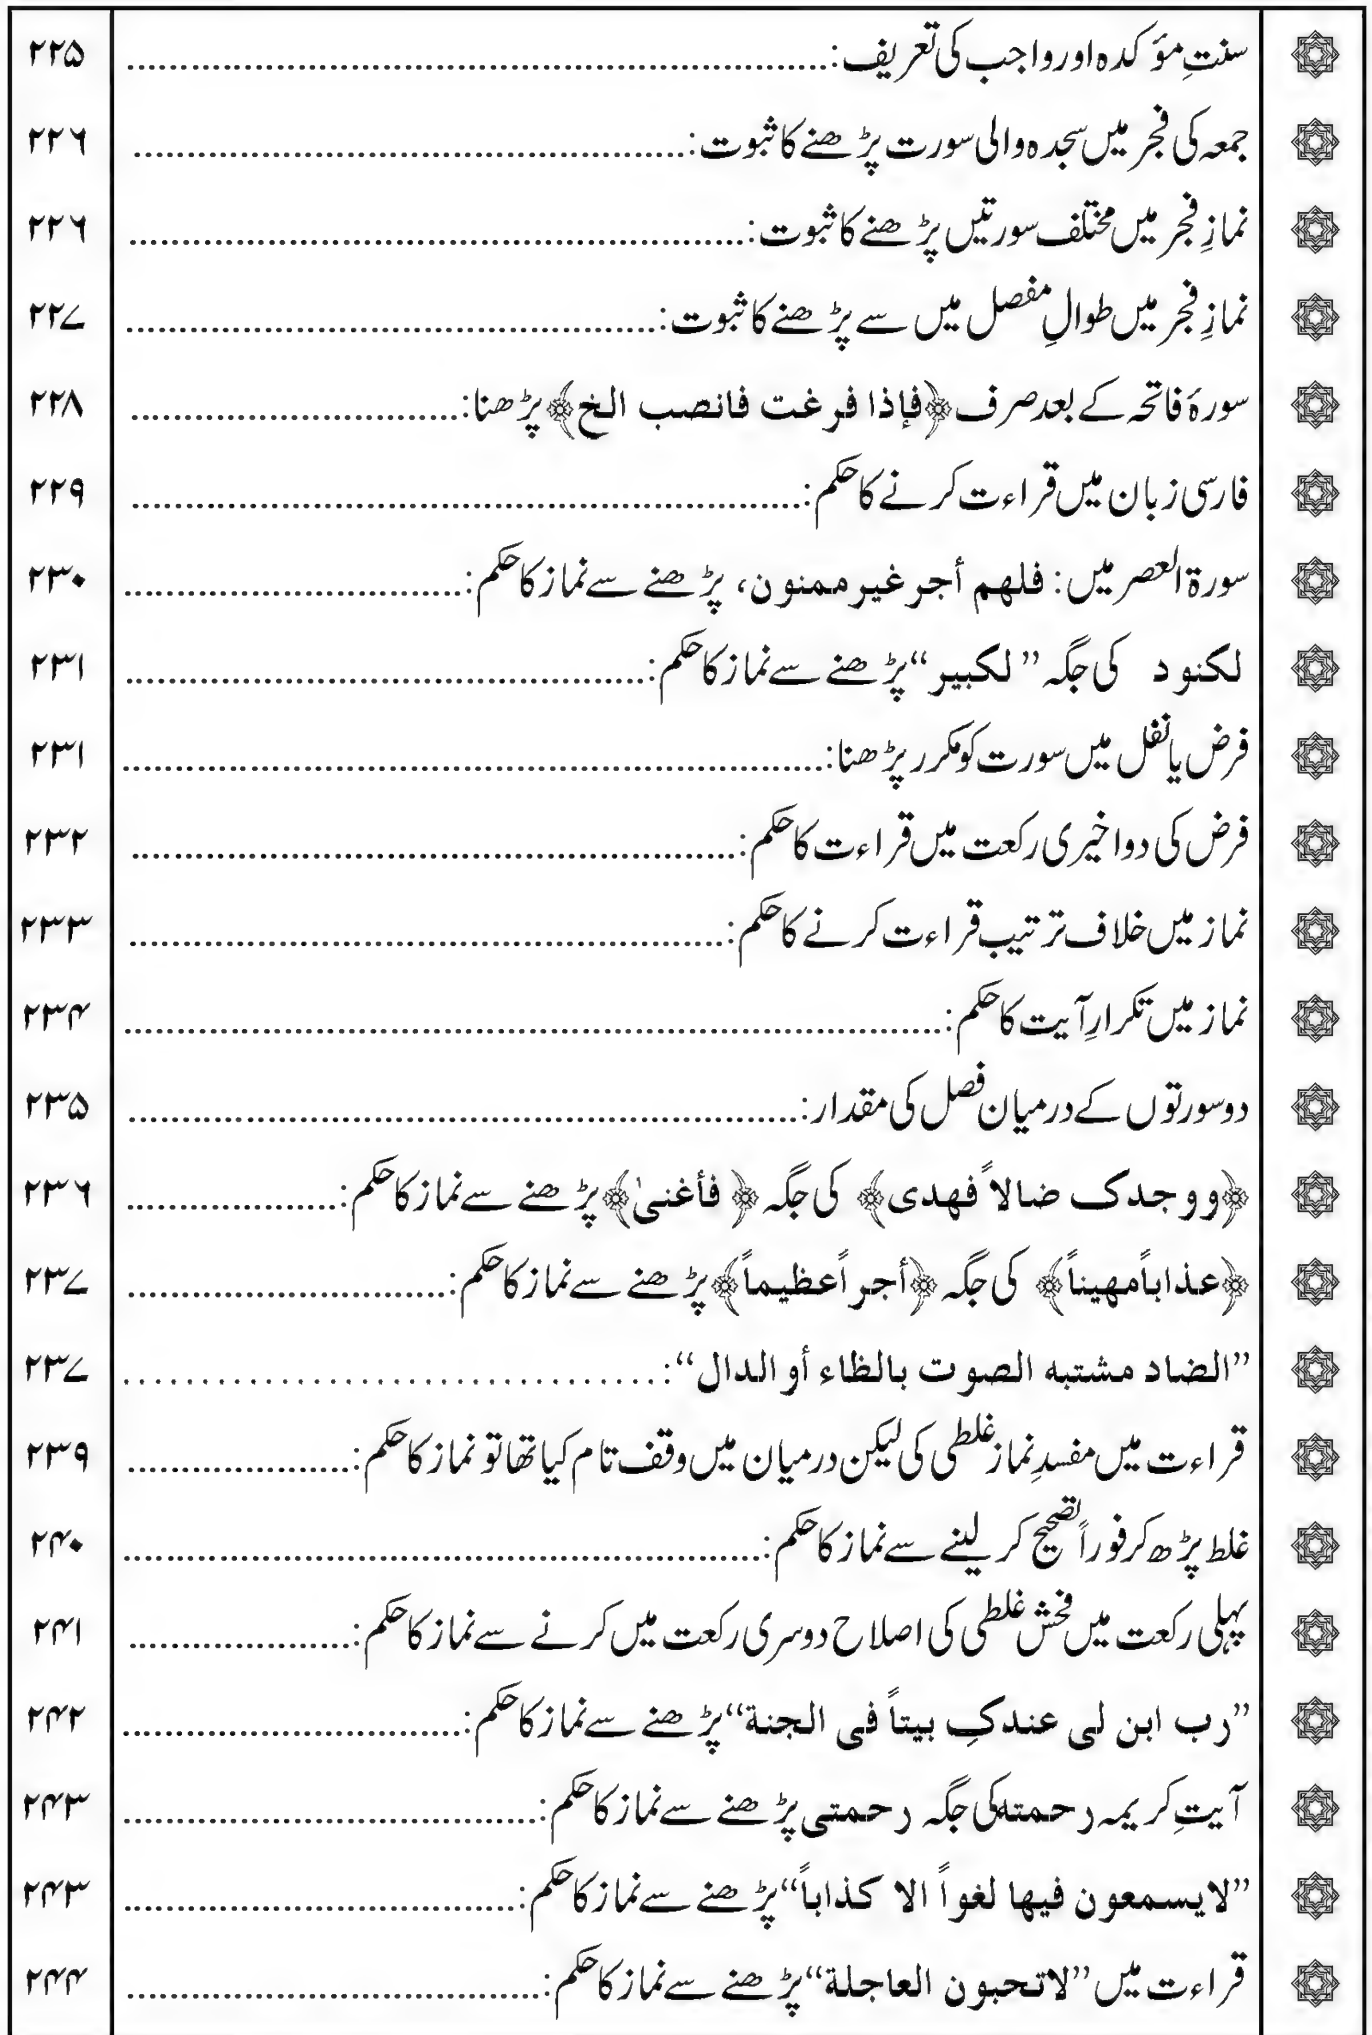 سنتِ مؤکدہ اور واجب کی تعریف:.......... ۲۲۵
جمعہ کی فجر میں سجدہ والی سورت پڑھنے کا ثبوت:.......... ۲۲۶
نمازِ فجر میں مختلف سورتیں پڑھنے کا ثبوت:.......... ۲۲۶
نمازِ فجر میں طوالِ مفصل میں سے پڑھنے کا ثبوت:.......... ۲۲۷
سورۂ فاتحہ کے بعد صرف ﴿فإذا فرغت فانصب الخ﴾ پڑھنا:.......... ۲۲۸
فارسی زبان میں قراءت کرنے کا حکم:.......... ۲۲۹
سورۃ العصر میں: فلهم أجر غير ممنون، پڑھنے سے نماز کا حکم:.......... ۲۳۰
لکنود کی جگہ ”لکبیر“ پڑھنے سے نماز کا حکم:.......... ۲۳۱
فرض یا نفل میں سورت کو مکرر پڑھنا:.......... ۲۳۱
فرض کی دو اخیری رکعت میں قراءت کا حکم:.......... ۲۳۲
نماز میں خلاف ترتیب قراءت کرنے کا حکم:.......... ۲۳۳
نماز میں تکرارِ آیت کا حکم:.......... ۲۳۴
دو سورتوں کے درمیان فصل کی مقدار:.......... ۲۳۵
﴿ووجدک ضالاً فهدی﴾ کی جگہ ﴿فأغنیٰ﴾ پڑھنے سے نماز کا حکم:.......... ۲۳۶
﴿عذاباً مهیناً﴾ کی جگہ ﴿أجراً عظیماً﴾ پڑھنے سے نماز کا حکم:.......... ۲۳۷
”الضاد مشتبه الصوت بالظاء أو الدال“:.......... ۲۳۷
قراءت میں مفسدِ نماز غلطی کی لیکن درمیان میں وقف تام کیا تھا تو نماز کا حکم:.......... ۲۳۹
غلط پڑھ کر فوراً تصحیح کر لینے سے نماز کا حکم:.......... ۲۴۰
پہلی رکعت میں فحش غلطی کی اصلاح دوسری رکعت میں کرنے سے نماز کا حکم:.......... ۲۴۱
”رب ابن لی عندکِ بیتاً فی الجنة“ پڑھنے سے نماز کا حکم:.......... ۲۴۲
آیتِ کریمہ رحمته کی جگہ رحمتی پڑھنے سے نماز کا حکم:.......... ۲۴۳
”لا یسمعون فیها لغواً الا کذاباً“ پڑھنے سے نماز کا حکم:.......... ۲۴۳
قراءت میں ”لا تحبون العاجلة“ پڑھنے سے نماز کا حکم:.......... ۲۴۴